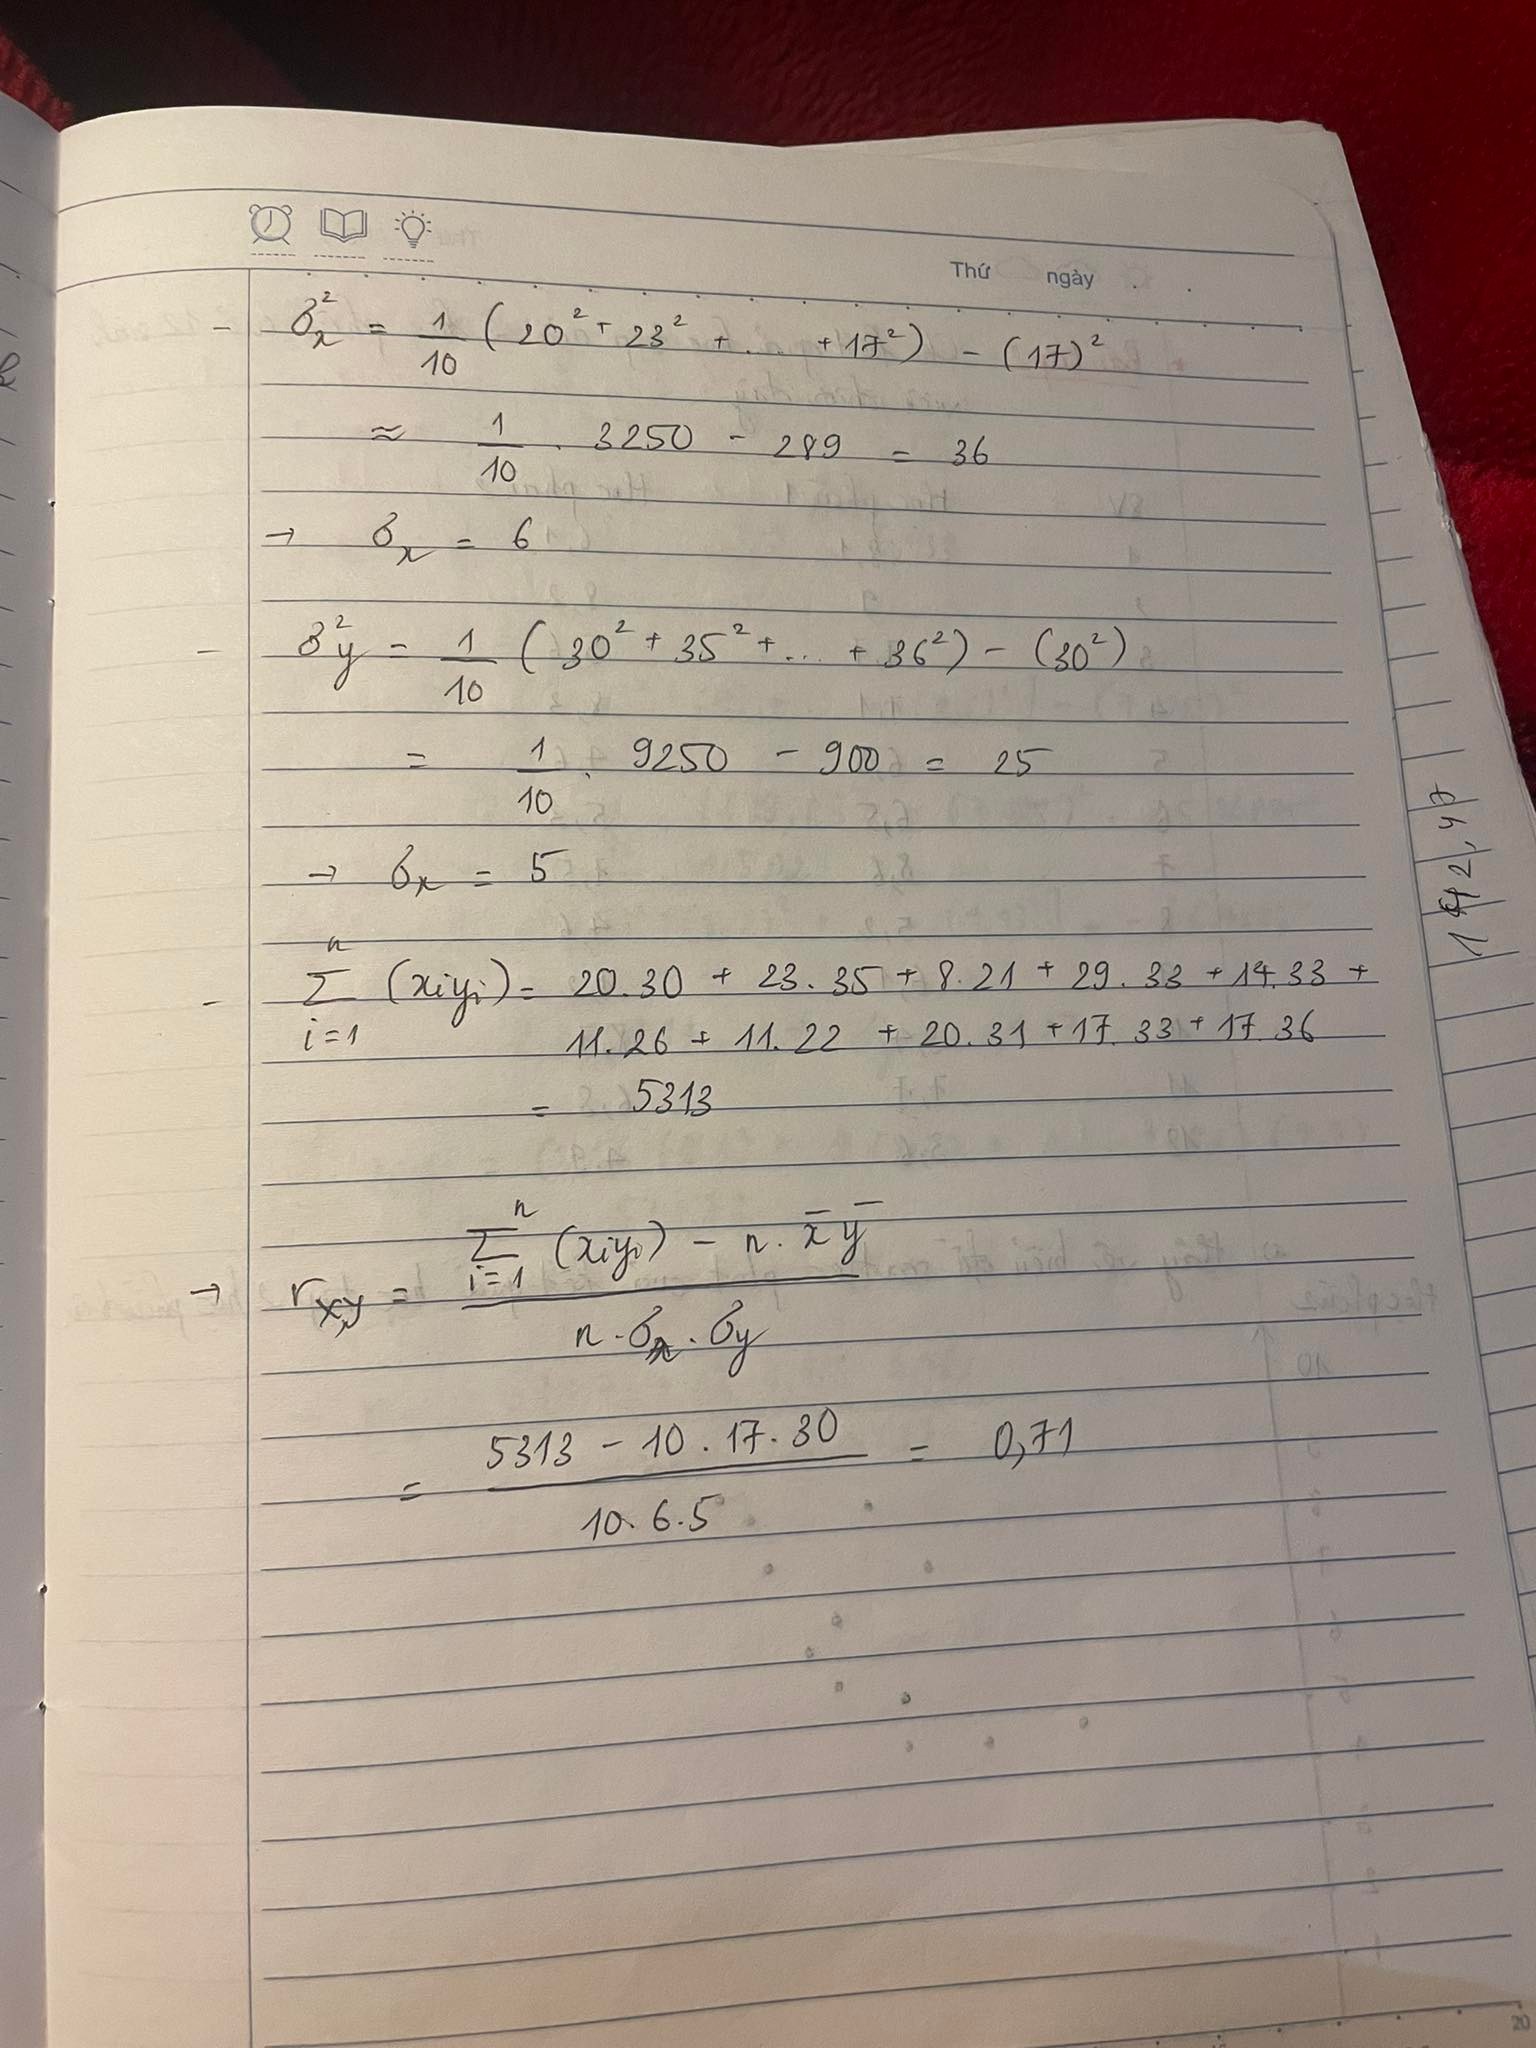 Thứ ngày
- σ²ₓ = 1/10 (20² + 23² + ... + 17²) - (17)²
≈ 1/10 . 3250 - 289 = 36
→ σₓ = 6
- σ²y = 1/10 (30² + 35² + ... + 36²) - (30²)
= 1/10 . 9250 - 900 = 25
→ σₓ = 5
- n Σ i=1 (xᵢyᵢ) = 20.30 + 23.35 + 8.21 + 29.33 + 14.33 +
11.26 + 11.22 + 20.31 + 17.33 + 17.36
= 5313
n Σ i=1 (xᵢyᵢ) - n . x̄ ȳ
→ r x,y =
n . σₓ . σy
5313 - 10 . 17 . 30
= = 0,71
10 . 6 . 5
20